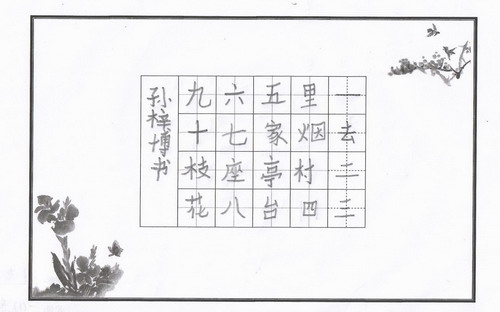 一去二三
里烟村四
五家亭台
六七座八
九十枝花
孙梓博书